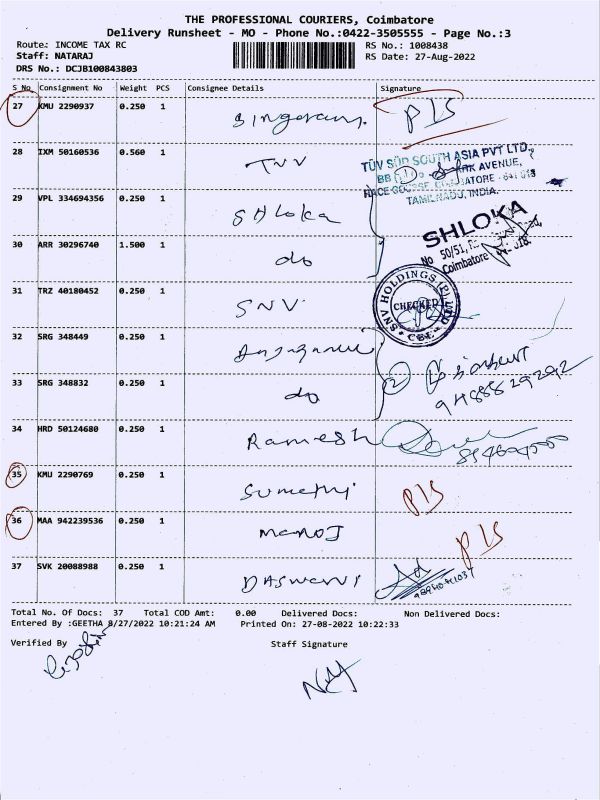 THE PROFESSIONAL COURIERS, Coimbatore
Delivery Runsheet - MO - Phone No.:0422-3505555 - Page No.:3
Route: INCOME TAX RC RS No.: 1008438
Staff: NATARAJ RS Date: 27-Aug-2022
DRS No.: DCJB100843803
S No Consignment No Weight PCS Consignee Details Signature
27 KMU 2290937 0.250 1
28 IXM 50160536 0.560 1 TUV
TÜV SÜD SOUTH ASIA PVT LTD.,
AVENUE,
RACE COURSE, COIMBATORE - 641 018
TAMILNADU, INDIA.
29 VPL 334694356 0.250 1 SHloka
30 ARR 30296740 1.500 1 do
SHLOKA
No 50/51,
Coimbatore
31 TRZ 40180452 0.250 1 SNV
SNV HOLDINGS (P) LTD
CHECKED
CBE
32 SRG 348449 0.250 1
33 SRG 348832 0.250 1 do
2
34 HRD 50124680 0.250 1 Ramesh
35 KMU 2290769 0.250 1 Sumathi
36 MAA 942239536 0.250 1 Manoj
37 SVK 20088988 0.250 1 DASWANI
Total No. Of Docs: 37 Total COD Amt: 0.00 Delivered Docs: Non Delivered Docs:
Entered By :GEETHA 8/27/2022 10:21:24 AM Printed On: 27-08-2022 10:22:33
Verified By Staff Signature